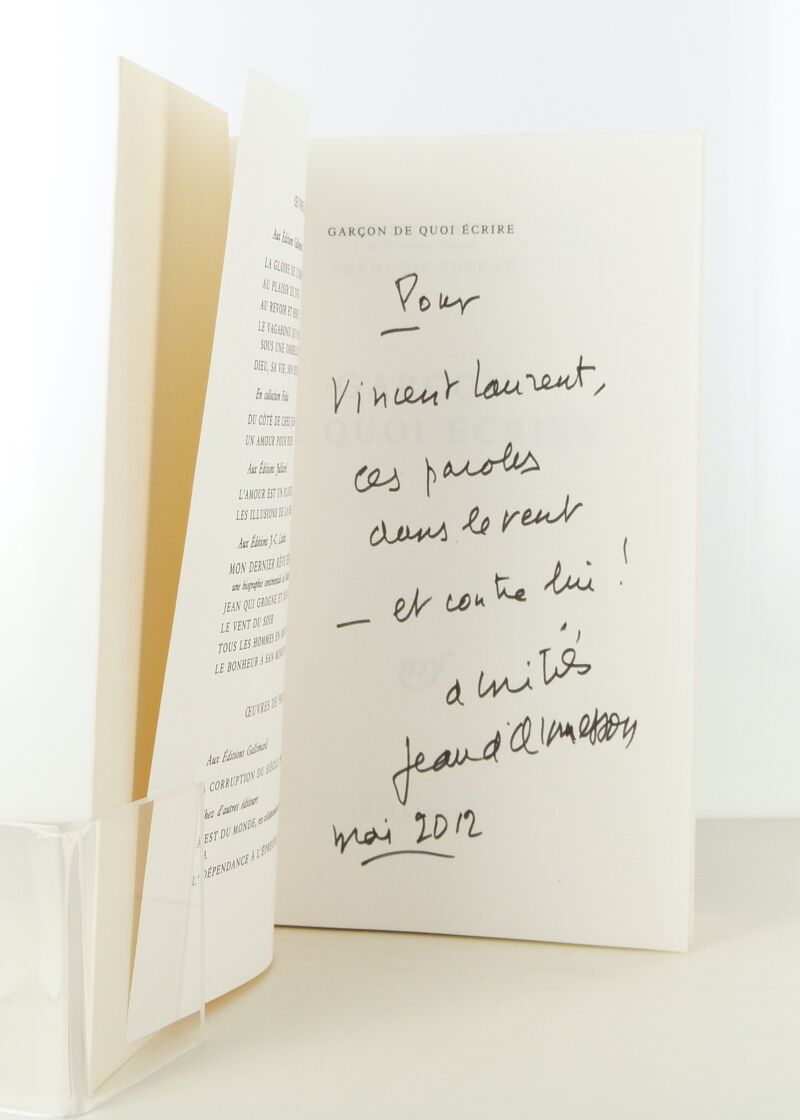 Aux Éditions
LA GLOIRE DE L'
AU PLAISIR DE
AU REVOIR ET
LE VAGABOND QUI
SOUS UNE
DIEU, SA VIE, SON
En collection Folio
DU CÔTÉ DE CHEZ
UN AMOUR POUR RIEN
Aux Éditions Julliard
L'AMOUR EST UN
LES ILLUSIONS DE LA
Aux Éditions J.-C. Lattès
MON DERNIER RÊVE
une biographie sentimentale de
JEAN QUI GROGNE ET
LE VENT DU SOIR
TOUS LES HOMMES EN
LE BONHEUR À SAN
ŒUVRES DE
Aux Éditions Gallimard
CORRUPTION DU SIÈCLE
Chez d'autres éditeurs
EST DU MONDE, en
DÉPENDANCE À L'
GARÇON DE QUOI ÉCRIRE
FRANÇOIS SUREAU
QUOI ÉCRIRE
nrf
Pour
Vincent Laurent,
ces paroles
dans le vent
— et contre lui !
amitiés
Jean d'Ormesson
mai 2012